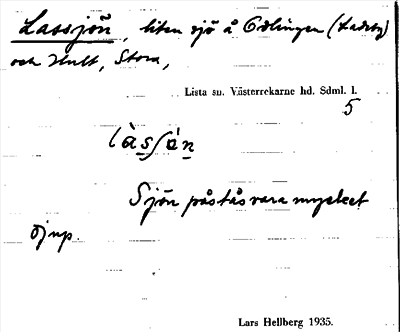 Lassjön, liten sjö å Odlingen (Ladeby)
och Hult, Stora,
Lista sn. Västerrekarne hd. Sdml. l.
5
Sjön påstås vara mycket
djup.
Lars Hellberg 1935.